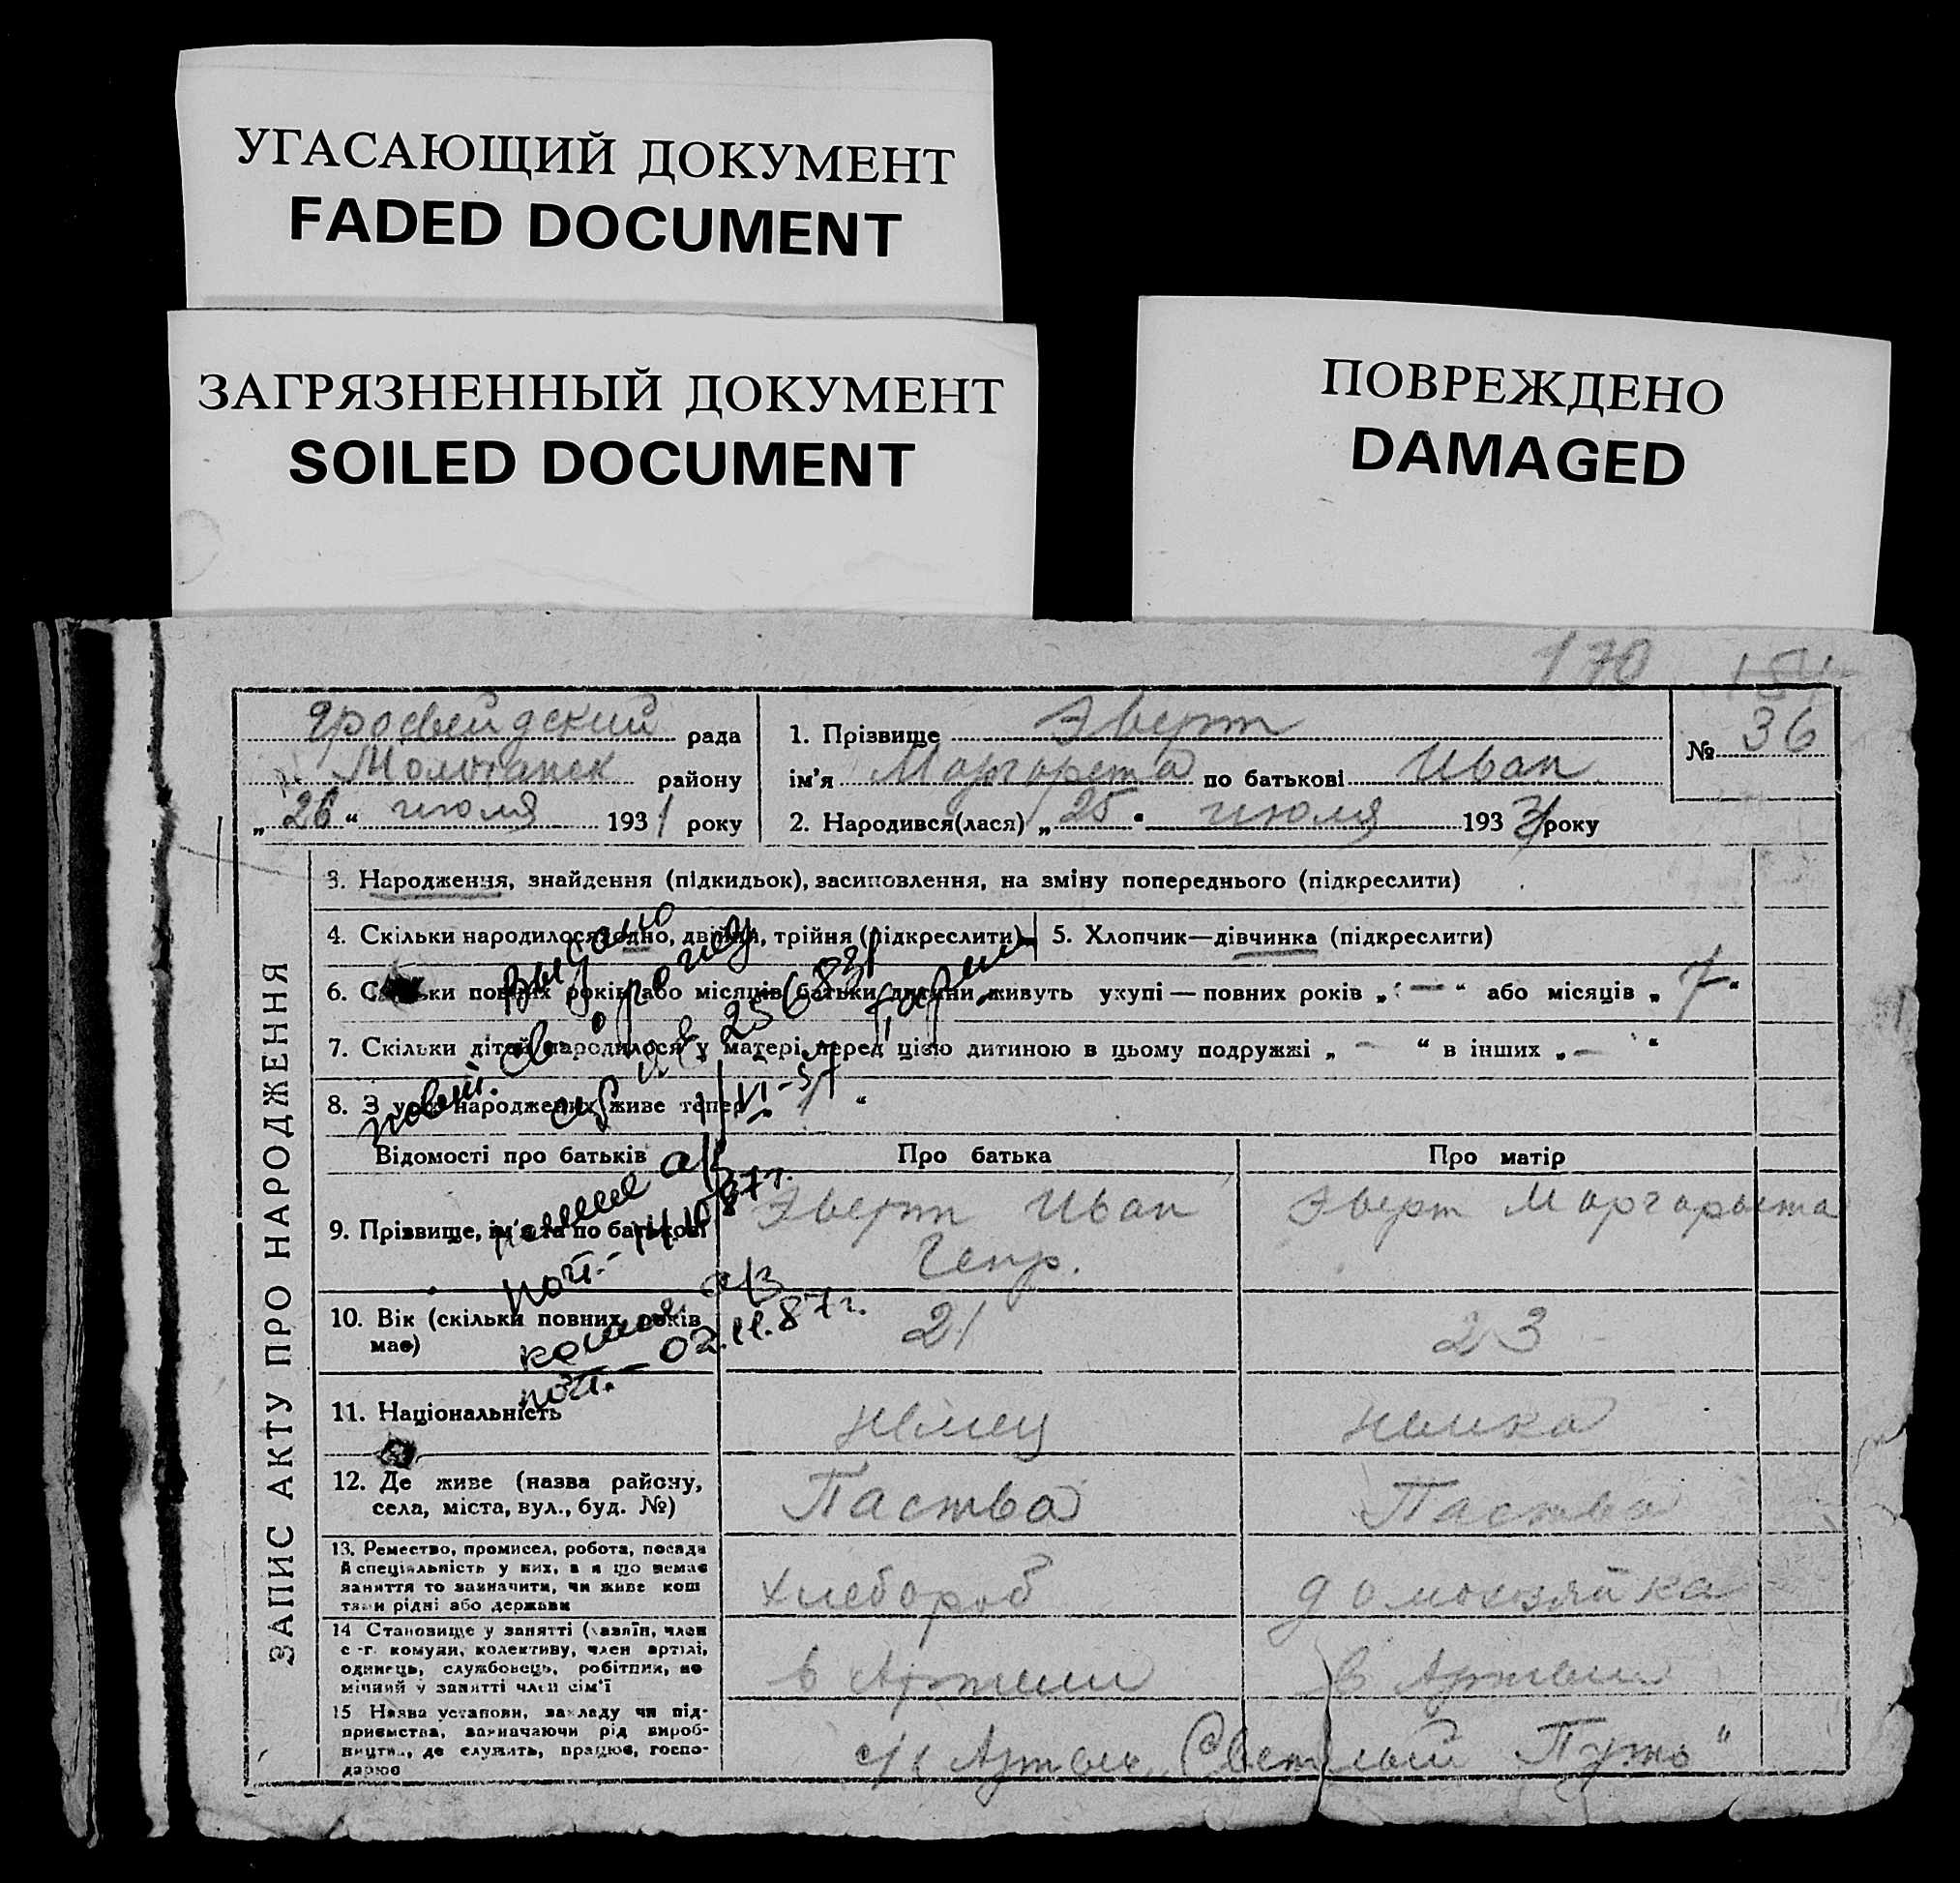 УГАСАЮЩИЙ ДОКУМЕНТ
FADED DOCUMENT
ЗАГРЯЗНЕННЫЙ ДОКУМЕНТ
SOILED DOCUMENT
ПОВРЕЖДЕНО
DAMAGED
170
рада
Молочанск району
„ 26 “ июля 1931 року
1. Прізвище Эверт
ім'я Маргарета по батькові Иван
2. Народився(лася) „ 25 “ июля 1931 року
№ 36
ЗАПИС АКТУ ПРО НАРОДЖЕННЯ
3. Народження, знайдення (підкидьок), засиновлення, на зміну попереднього (підкреслити)
4. Скільки народилося: одно, двійня, трійня (підкреслити)
5. Хлопчик—дівчинка (підкреслити)
6. Скільки повних років або місяців батьки дитини живуть укупі — повних років „ — “ або місяців „ 7 “
7. Скільки дітей народилося у матері перед цією дитиною в цьому подружжі „ — “ в інших „ — “
8. З усіх народжених живе тепер „ 1 “
Выдано
повт. св. о рожд
Відомості про батьків
Про батька
Про матір
9. Прізвище, ім'я та по батькові
Эверт Иван
Генр.
Эверт Маргарыта
10. Вік (скільки повних років
має)
21
23
копия а/з
пот. — 02.11.87 г.
11. Національність
німец
німка
12. Де живе (назва району,
села, міста, вул., буд. №)
Паства
Паства
13. Ремество, промисел, робота, посада
й спеціяльність у них, а я що немає
заняття то зазначити, чи живе кош
тами рідні або держави
хлебороб
домохозяйка
14 Становище у занятті (хазяїн, член
с.-г. комуни, колективу, член артілі,
одинець, службовець, робітник, по
мічний у занятті член сім'ї
в Артели
в Артели
15 Назва установи, закладу чи під-
приємства, зазначаючи рід вироб-
ництва, де служить, працює, госпо-
дарює
с/х Артель „Светлый Путь“